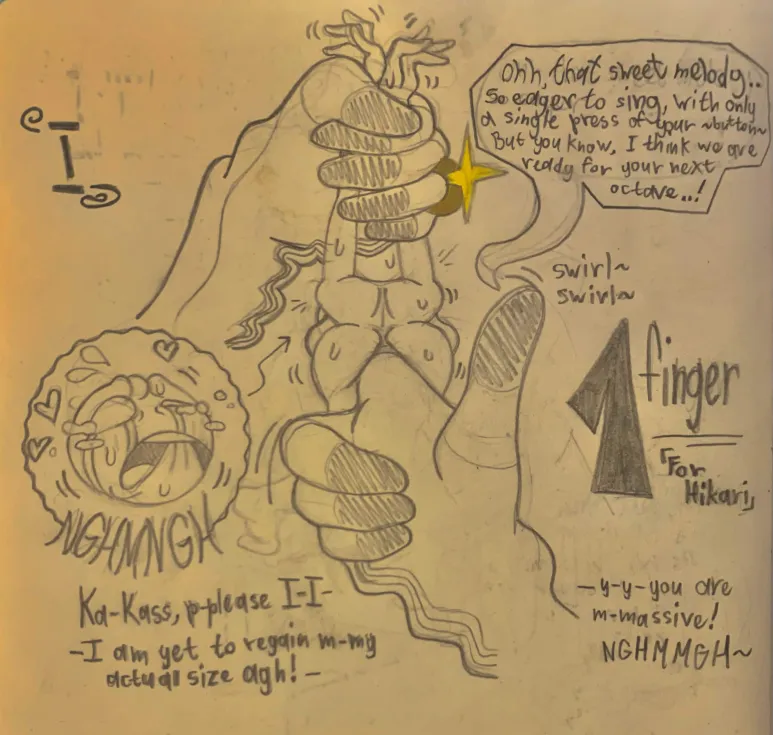 I
Ohh, that sweet melody..
So eager to sing, with only
a single press of your ~button~
But you know, I think we are
ready for your next
octave..!
swirl~
swirl~
1 finger
「For
Hikari」
NGHMNGH
Ka-Kass, p-please I-I-
-I am yet to regain m-my
actual size agh! -
- y-y-you are
m-massive!
NGHMMGH~